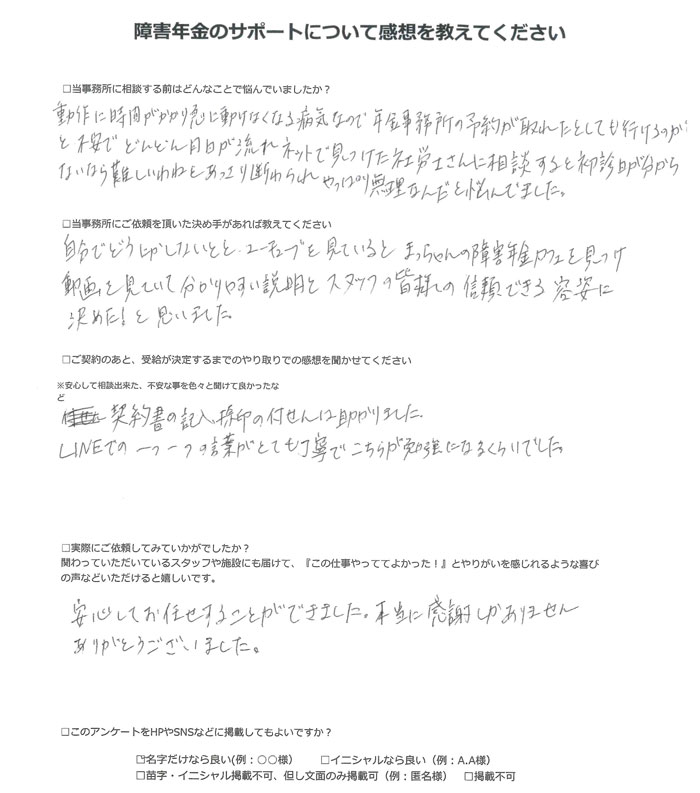 障害年金のサポートについて感想を教えてください
□当事務所に相談する前はどんなことで悩んでいましたか？
動作に時間がかかり急に動けなくなる病気なので年金事務所の予約が取れたとしても行けるのか?
と不安でどんどん月日が流れネットで見つけた社労士さんに相談すると初診日が分から
ないなら難しいわねとあっさり断わられやっぱり無理なんだと悩んでました。
□当事務所にご依頼を頂いた決め手があれば教えてください
自分でどうにかしないとと、ユーチューブを見ているとまっちゃんの障害年金カフェを見つけ
動画を見ていて分かりやすい説明とスタッフの皆様の信頼できる容姿に
決めた！と思いました。
□ご契約のあと、受給が決定するまでのやり取りでの感想を聞かせてください
※安心して相談出来た、不安な事を色々と聞けて良かったな
ど
契約書の記入、捺印の付せんは助かりました。
LINEでの一つ一つの言葉がとても丁寧でこちらが勉強になるくらいでした。
□実際にご依頼してみていかがでしたか？
関わっていただいているスタッフや施設にも届けて、『この仕事やっててよかった！』とやりがいを感じれるような喜び
の声などいただけると嬉しいです。
安心してお任せすることができました。本当に感謝しかありません
ありがとうございました。
□このアンケートをHPやSNSなどに掲載してもよいですか？
☑名字だけなら良い(例：○○様) □イニシャルなら良い（例：A.A様）
□苗字・イニシャル掲載不可、但し文面のみ掲載可（例：匿名様） □掲載不可